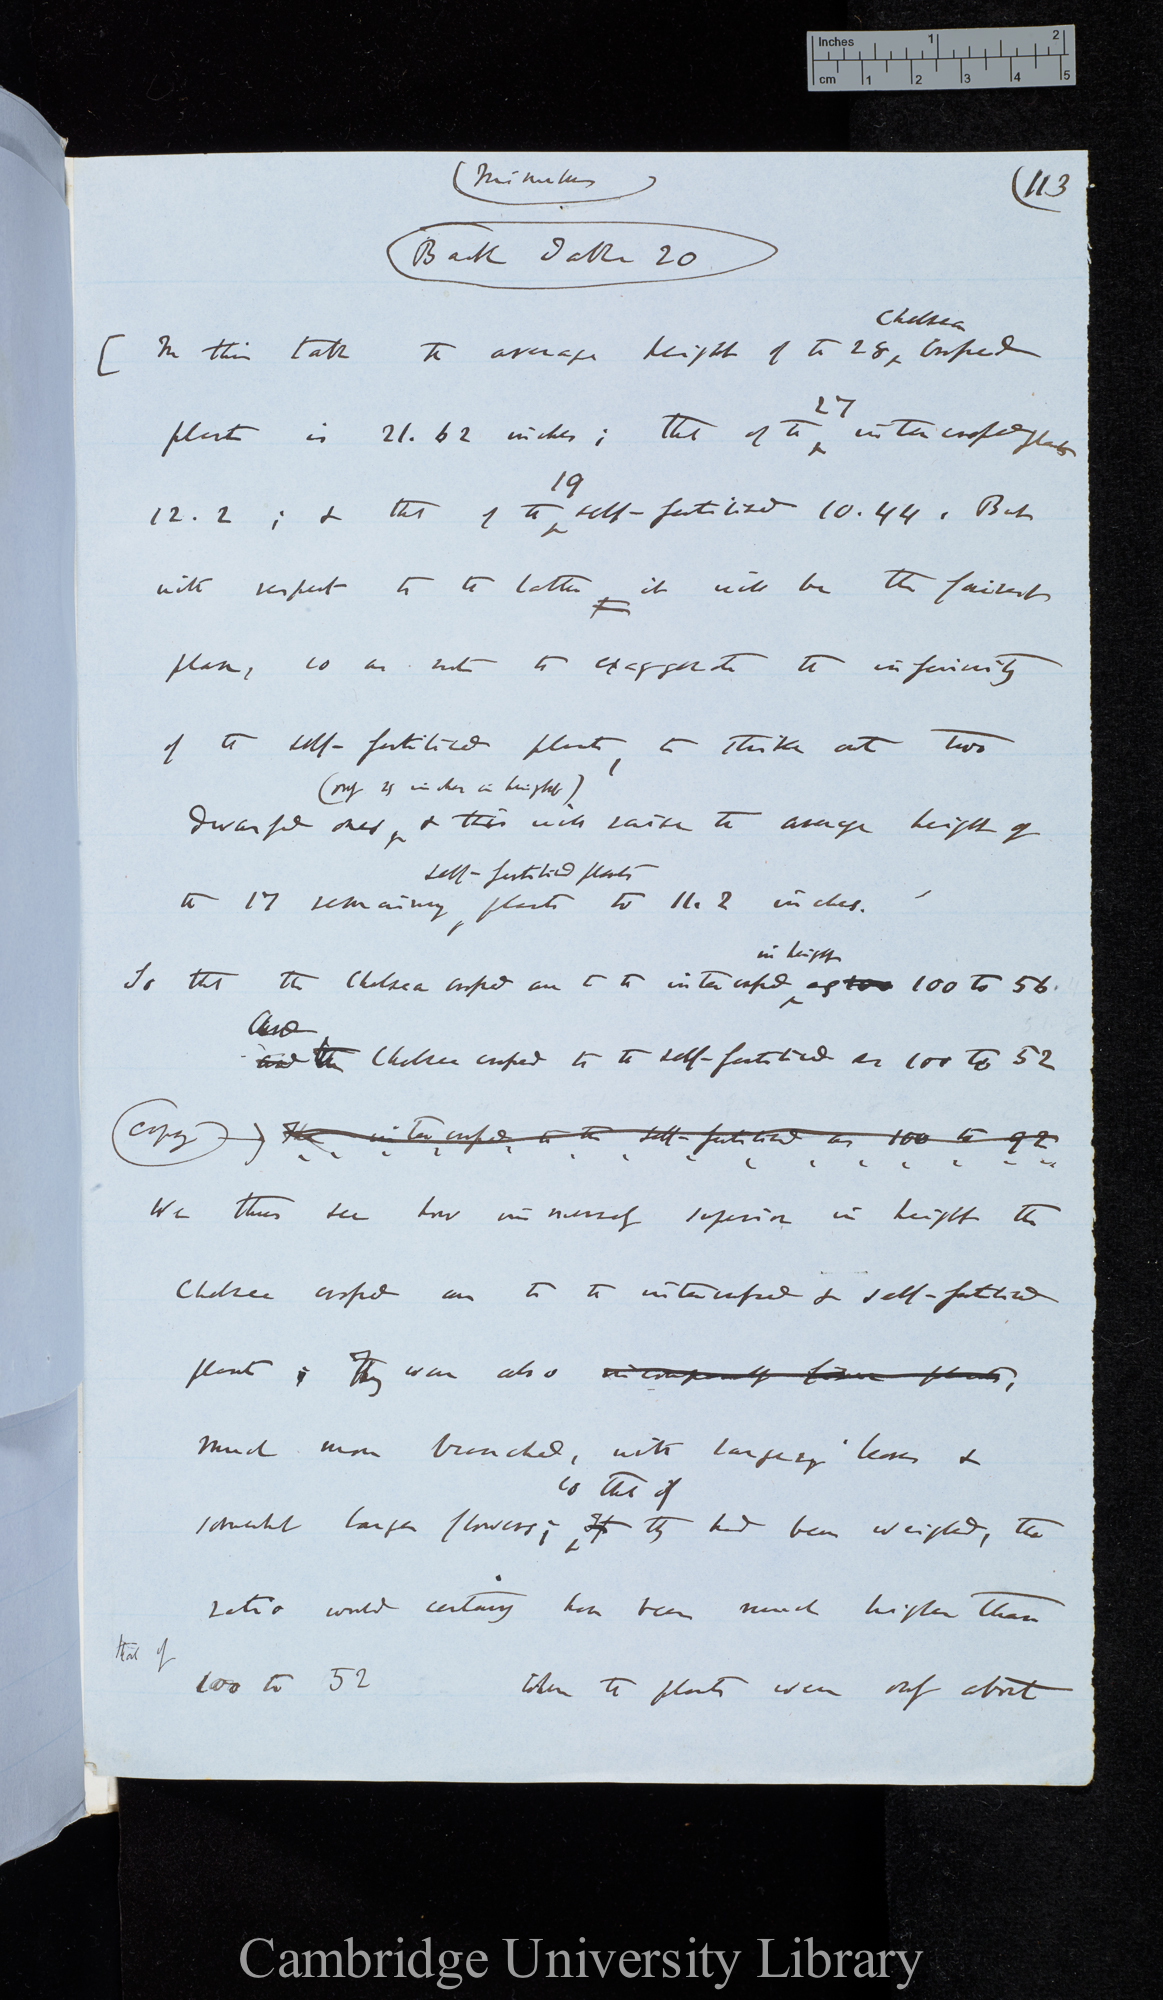 Inches 1 2
cm 1 2 3 4 5
(Mimulus) (113
Back Table 20
Chelsea
[ In this table the average height of the 28 crossed
27
plants is 21.62 inches; that of the intercrossed plants
19
12.2; & that of the self-fertilised 10.44. But
with respect to the latter it will be the fairest
plan, so as not to exaggerate the inferiority
of the self-fertilised plants, to strike out two
(only 2 1/2 inches in height)
dwarfed ones, & this will raise the average height of
self-fertilised plants
the 17 remaining plants to 11.2 inches.
in height
So that the Chelsea crossed are to the intercrossed as 100 to 56.
And
and the Chelsea crossed to the self-fertilised as 100 to 52
(Copy) The intercrossed to the self-fertilised as 100 to 92
We thus see how immensely superior in height the
Chelsea crossed are to the intercrossed & self-fertilised
plants; They were also incomparably finer plants,
much more branched, with larger leaves &
so that if
somewhat larger flowers; If they had been weighed, the
ratio would certainly have been much higher than
that of
100 to 52 when the plants were only about
Cambridge University Library